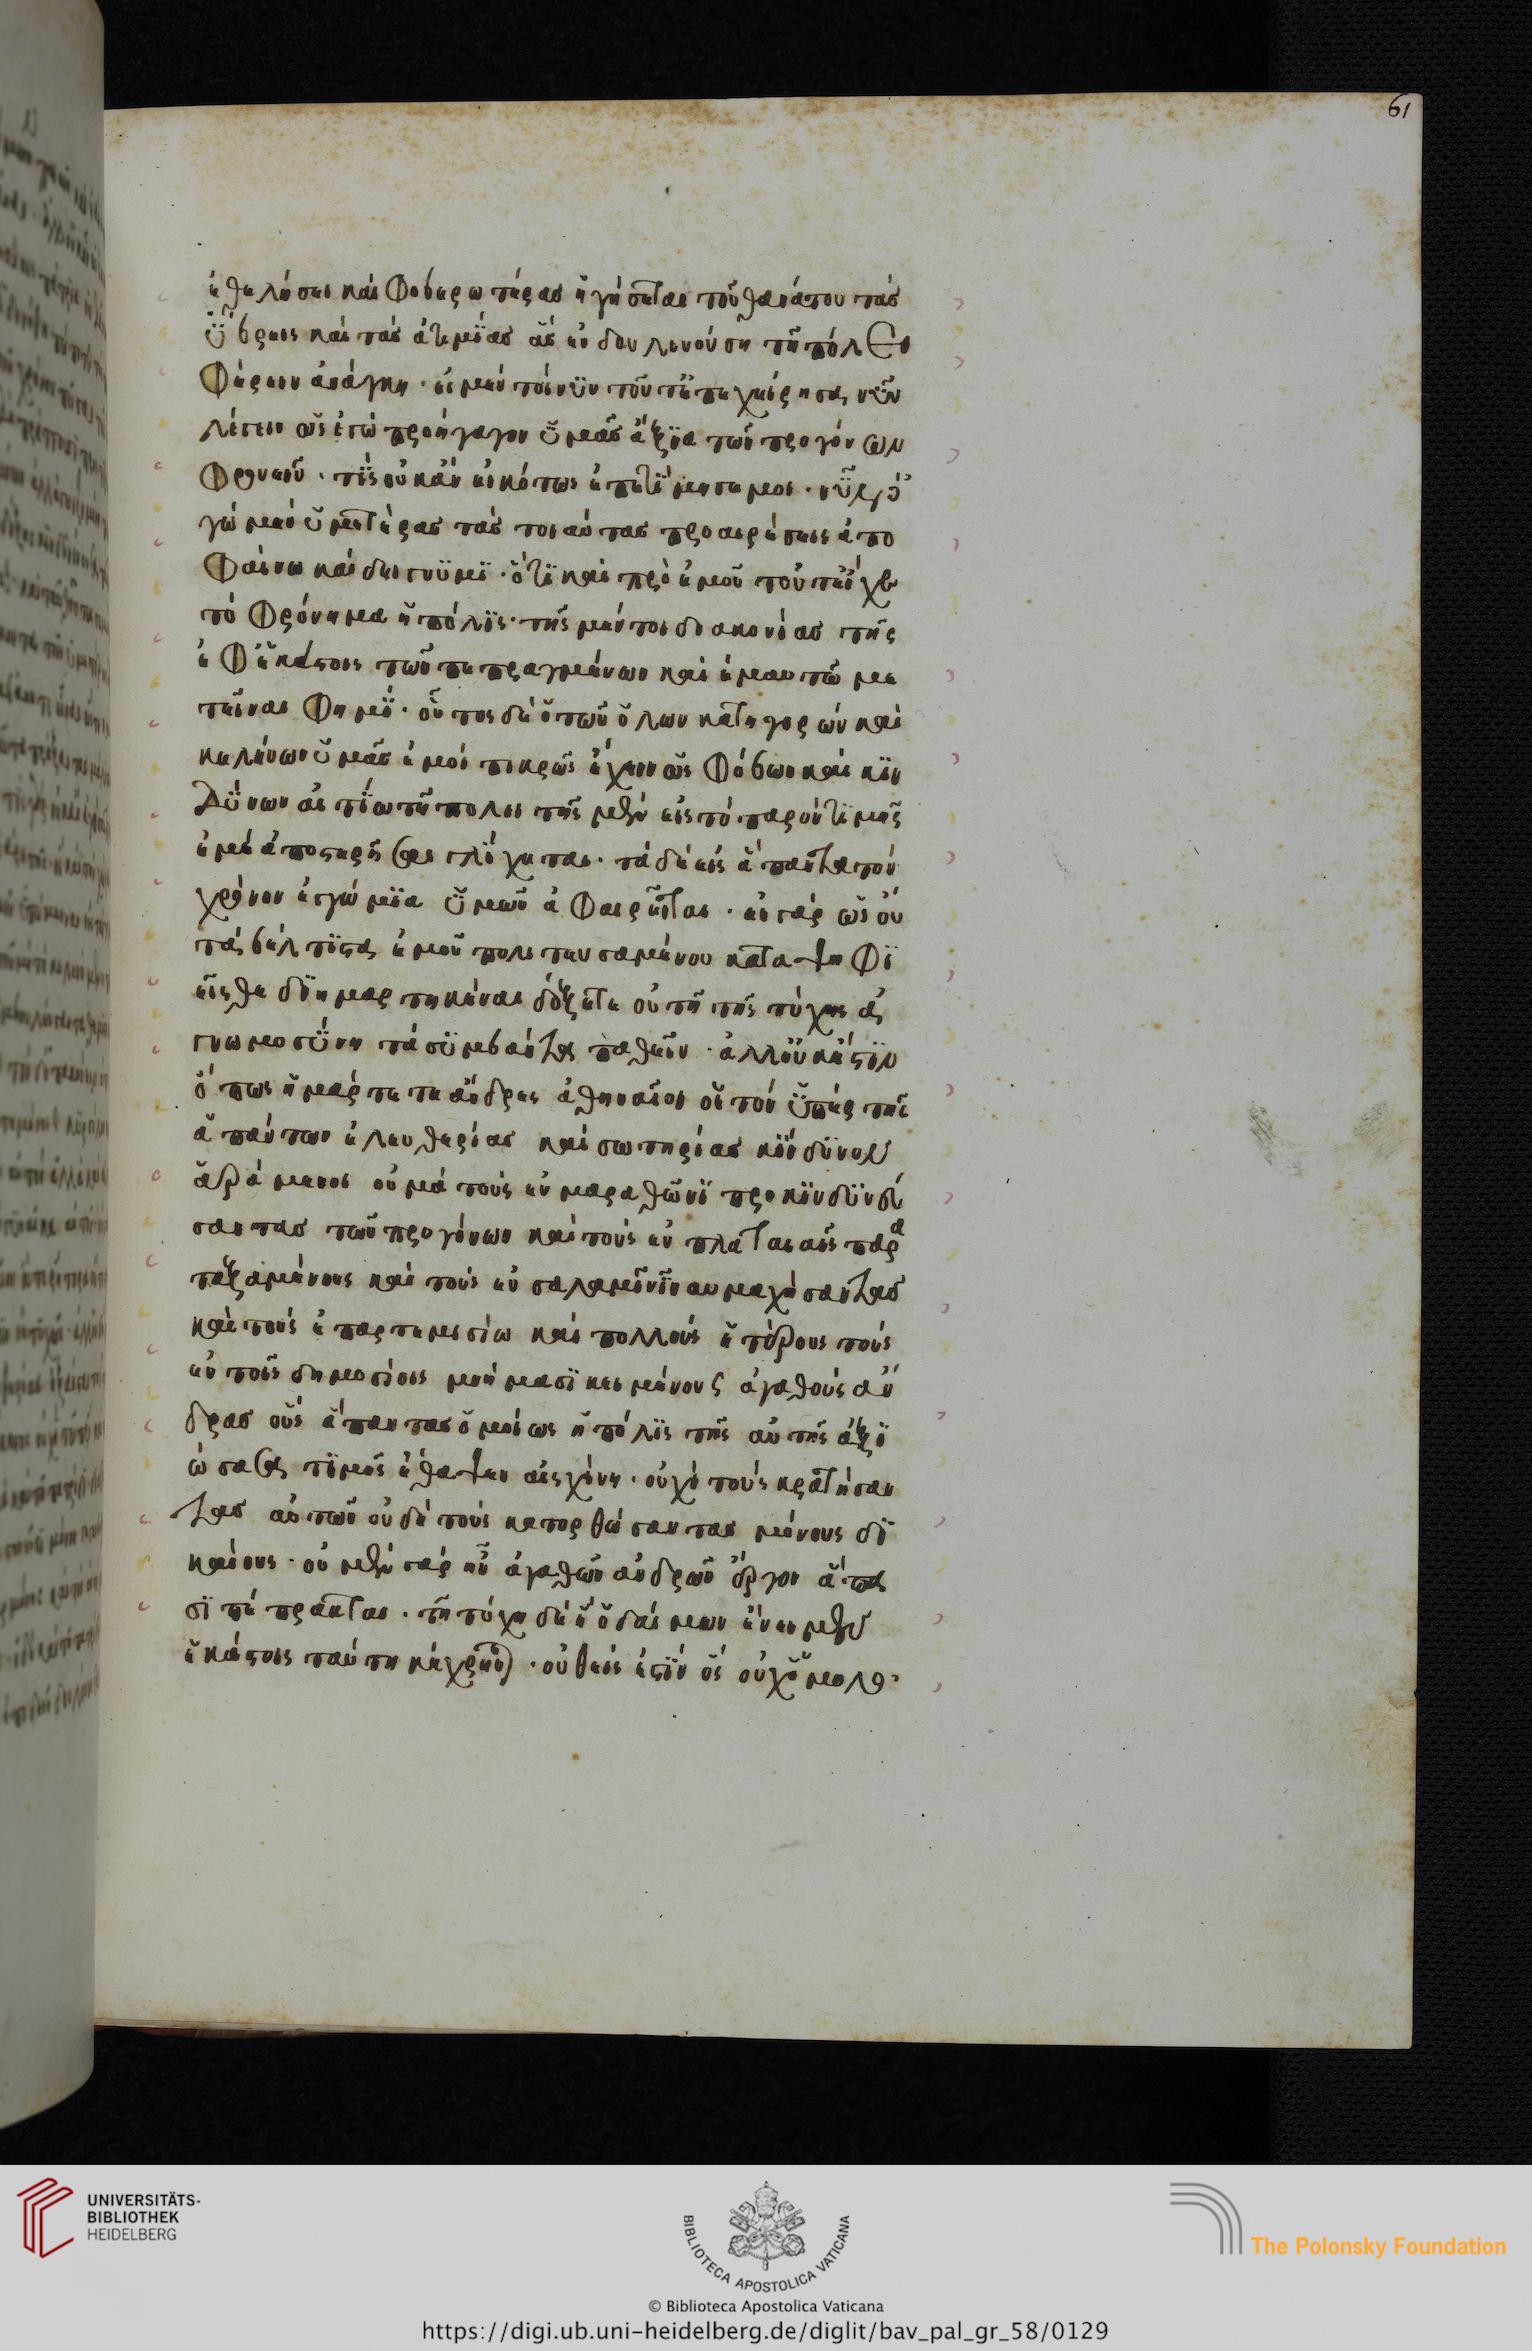 61
ἐθελήσει καὶ φοβερωτέρας ἡγήσεται τοῦ θανάτου τὰς
ὕβρεις καὶ τὰς ἀτιμίας ἃς ἐν δουλευούσῃ τῇ πόλει
φέρειν ἀνάγκη· εἰ μὲν τοίνυν τοῦτ' ἐπεχείρησα νῦν
λέγειν ὡς ἐγὼ προήγαγον ὑμᾶς ἄξια τῶν προγόνων
φρονεῖν· τίς οὐκ ἂν εἰκότως ἐπετίμησέ μοι· νῦν δ' ἐ
γὼ μὲν ὑμετέρας τὰς τοιαύτας προαιρέσεις ἀπο
φαίνω καὶ δείκνυμι· ὅτι καὶ πρὸ ἐμοῦ τοῦτ' εἶχε
τὸ φρόνημα ἡ πόλις· τῆς μέντοι διακονίας τῆς
ἐφ' ἑκάστοις τῶν πεπραγμένων καὶ ἐμαυτῷ με
τεῖναι φημί· οὗτος δὲ ὁ τῶν ὅλων κατηγορῶν καὶ
κελεύων ὑμᾶς ἐμοὶ πικρῶς ἔχειν ὡς φόβων καὶ κιν
δύνων αἰτίῳ τῇ πόλει τῆς μὲν εἰς τὸ παρὸν τιμῆς
ἐμὲ ἀποστερῆσαι γλίχεται· τὰ δὲ εἰς ἅπαντα τὸν
χρόνον ἐγκώμια ὑμῶν ἀφαιρεῖται· εἰ γὰρ ὡς οὐ
τὰ βέλτιστα ἐμοῦ πολιτευσαμένου καταψηφι
εῖσθε διημαρτηκέναι δόξετε οὐ τῇ τῆς τύχης ἀ
γνωμοσύνῃ τὰ συμβάντα παθεῖν· ἀλλ' οὐκ ἔστιν
ὅπως ἡμάρτετε ἄνδρες ἀθηναῖοι οἱ τὸν ὑπὲρ τῆς
ἁπάντων ἐλευθερίας καὶ σωτηρίας κίνδυνον
ἀράμενοι οὐ μὰ τοὺς ἐν μαραθῶνι προκινδυνεύ
σαντας τῶν προγόνων καὶ τοὺς ἐν πλαταιαῖς παρα
ταξαμένους καὶ τοὺς ἐν σαλαμῖνι ναυμαχήσαντας
καὶ τοὺς ἐπ' ἀρτεμισίῳ καὶ πολλοὺς ἑτέρους τοὺς
ἐν τοῖς δημοσίοις μνήμασι κειμένους ἀγαθοὺς ἄν
δρας οὓς ἅπαντας ὁμοίως ἡ πόλις τῆς αὐτῆς ἀξι
ώσασα τιμῆς ἔθαψεν αἰσχίνη· οὐχὶ τοὺς κρατήσαν
τας αὐτῶν οὐδὲ τοὺς κατορθώσαντας μόνους δι
καίως· ὃ μὲν γὰρ ἦν ἀγαθῶν ἀνδρῶν ἔργον ἅπα
σι πέπρακται· τῇ τύχῃ δὲ ἣν ὁ δαίμων ἔνειμεν
ἑκάστοις ταύτῃ κέχρηνται· οὐθείς ἐστιν ὃς οὐχ ὁμολο
UNIVERSITÄTS-
BIBLIOTHEK
HEIDELBERG
BIBLIOTECA APOSTOLICA VATICANA
The Polonsky Foundation
© Biblioteca Apostolica Vaticana
https://digi.ub.uni-heidelberg.de/diglit/bav_pal_gr_58/0129